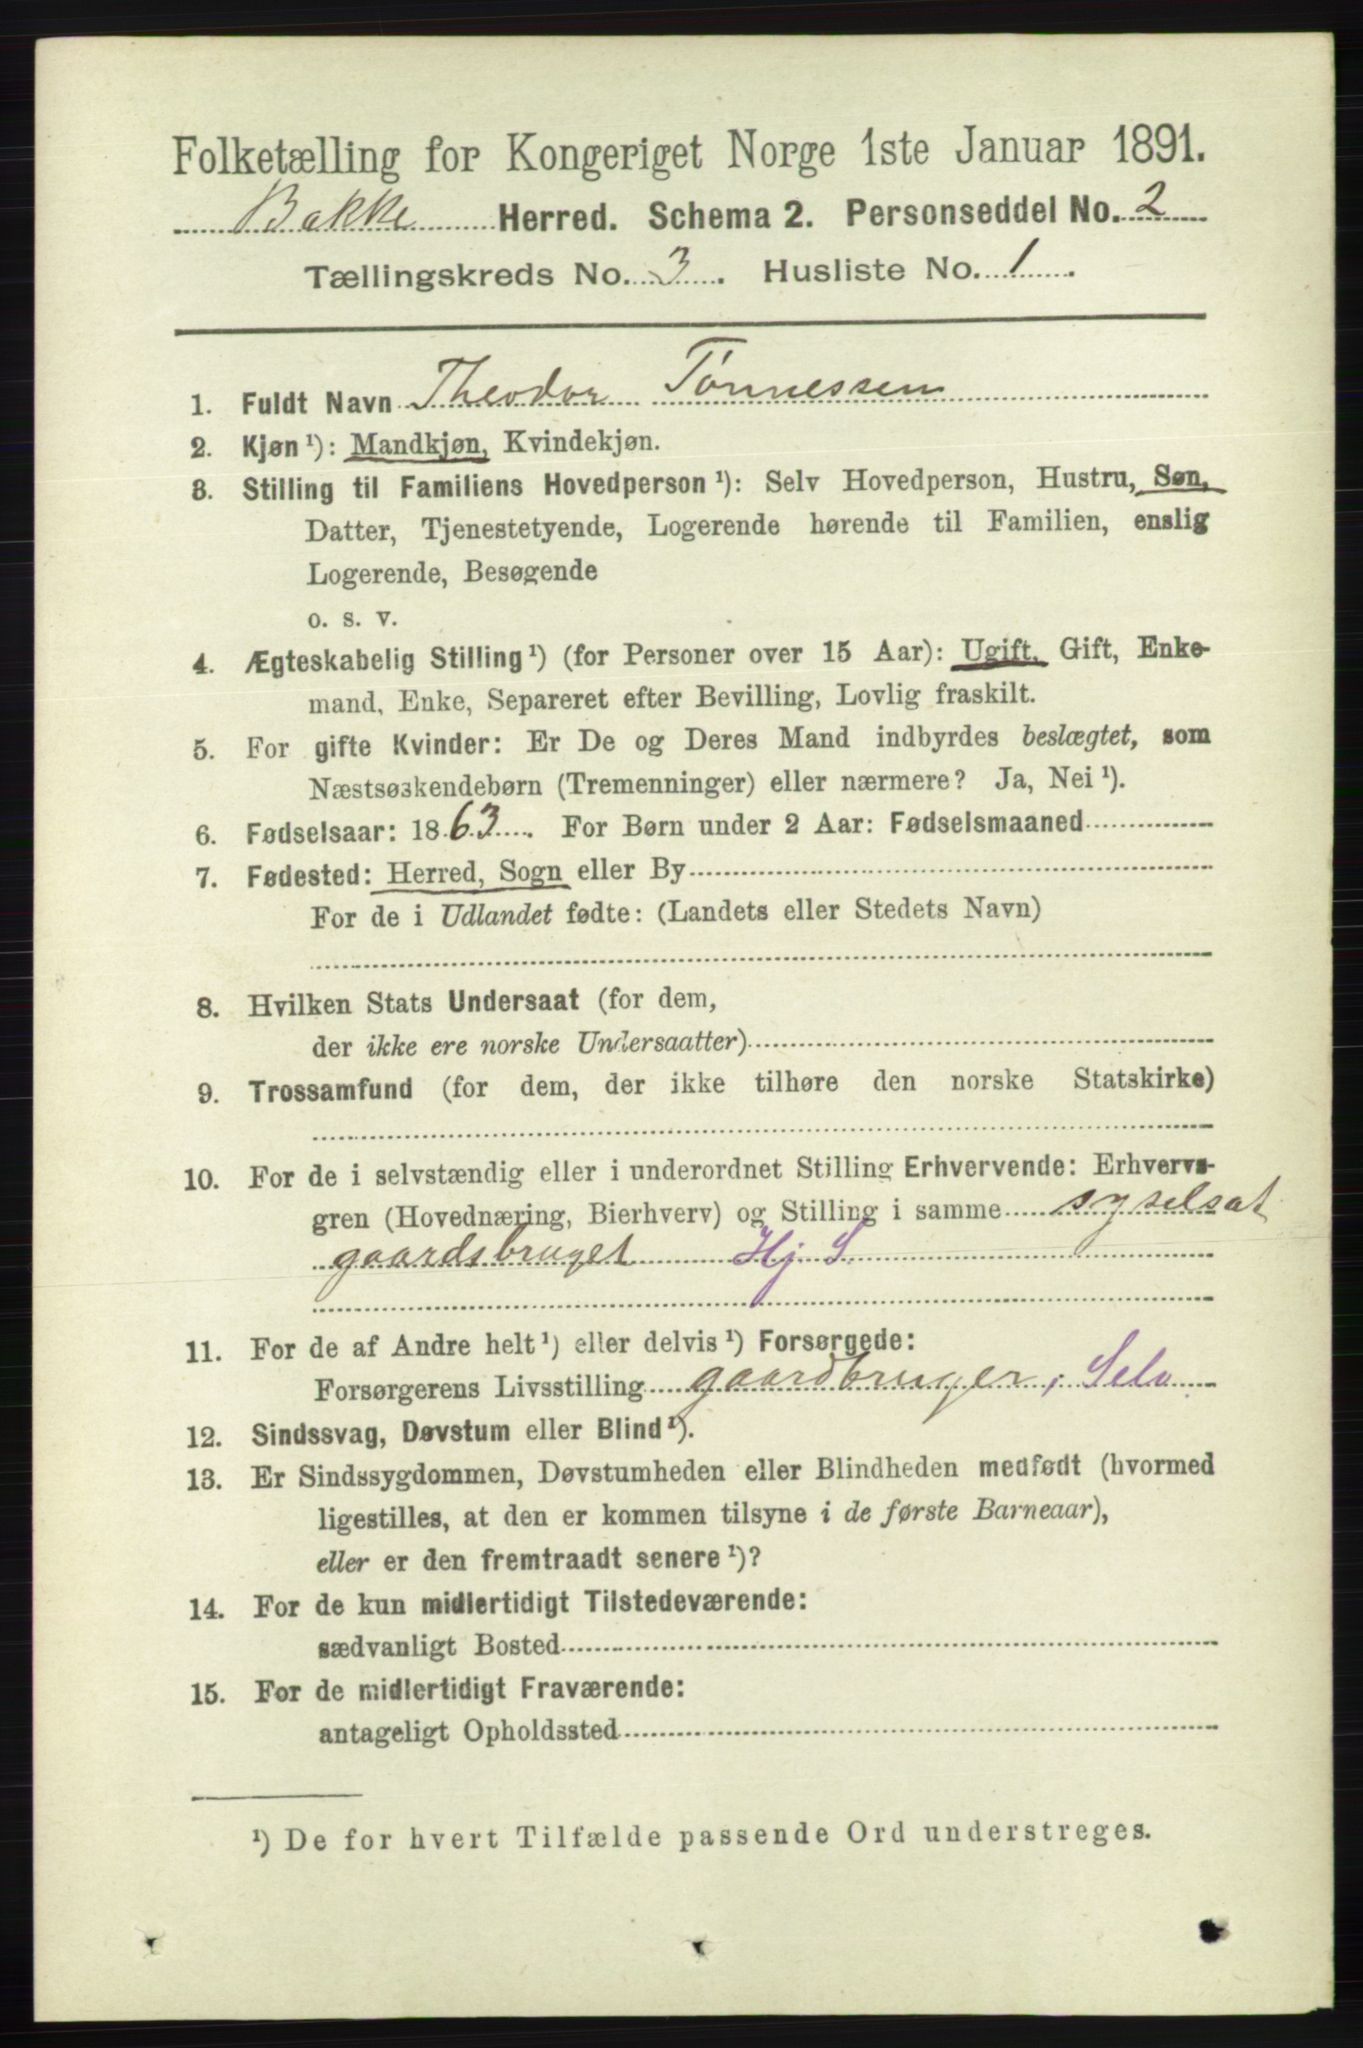 Folketælling for Kongeriget Norge 1ste Januar 1891.
Bakke Herred. Schema 2. Personseddel No. 2
Tællingskreds No. 3. Husliste No. 1.
1. Fuldt Navn Theodor Tönnessen
2. Kjøn ¹): Mandkjøn, Kvindekjøn.
3. Stilling til Familiens Hovedperson ¹): Selv Hovedperson, Hustru, Søn,
Datter, Tjenestetyende, Logerende hørende til Familien, enslig
Logerende, Besøgende
o. s. v.
4. Ægteskabelig Stilling ¹) (for Personer over 15 Aar): Ugift, Gift, Enke-
mand, Enke, Separeret efter Bevilling, Lovlig fraskilt.
5. For gifte Kvinder: Er De og Deres Mand indbyrdes beslægtet, som
Næstsøskendebørn (Tremenninger) eller nærmere? Ja, Nei ¹).
6. Fødselsaar: 1863. For Børn under 2 Aar: Fødselsmaaned
7. Fødested: Herred, Sogn eller By
For de i Udlandet fødte: (Landets eller Stedets Navn)
8. Hvilken Stats Undersaat (for dem,
der ikke ere norske Undersaatter)
9. Trossamfund (for dem, der ikke tilhøre den norske Statskirke)
10. For de i selvstændig eller i underordnet Stilling Erhvervende: Erhvervs-
gren (Hovednæring, Bierhverv) og Stilling i samme syselsat
gaardsbruget Hj S.
11. For de af Andre helt ¹) eller delvis ¹) Forsørgede:
Forsørgerens Livsstilling gaardbruger, Selv.
12. Sindssvag, Døvstum eller Blind ¹).
13. Er Sindssygdommen, Døvstumheden eller Blindheden medfødt (hvormed
ligestilles, at den er kommen tilsyne i de første Barneaar),
eller er den fremtraadt senere ¹)?
14. For de kun midlertidigt Tilstedeværende:
sædvanligt Bosted
15. For de midlertidigt Fraværende:
antageligt Opholdssted
¹) De for hvert Tilfælde passende Ord understreges.